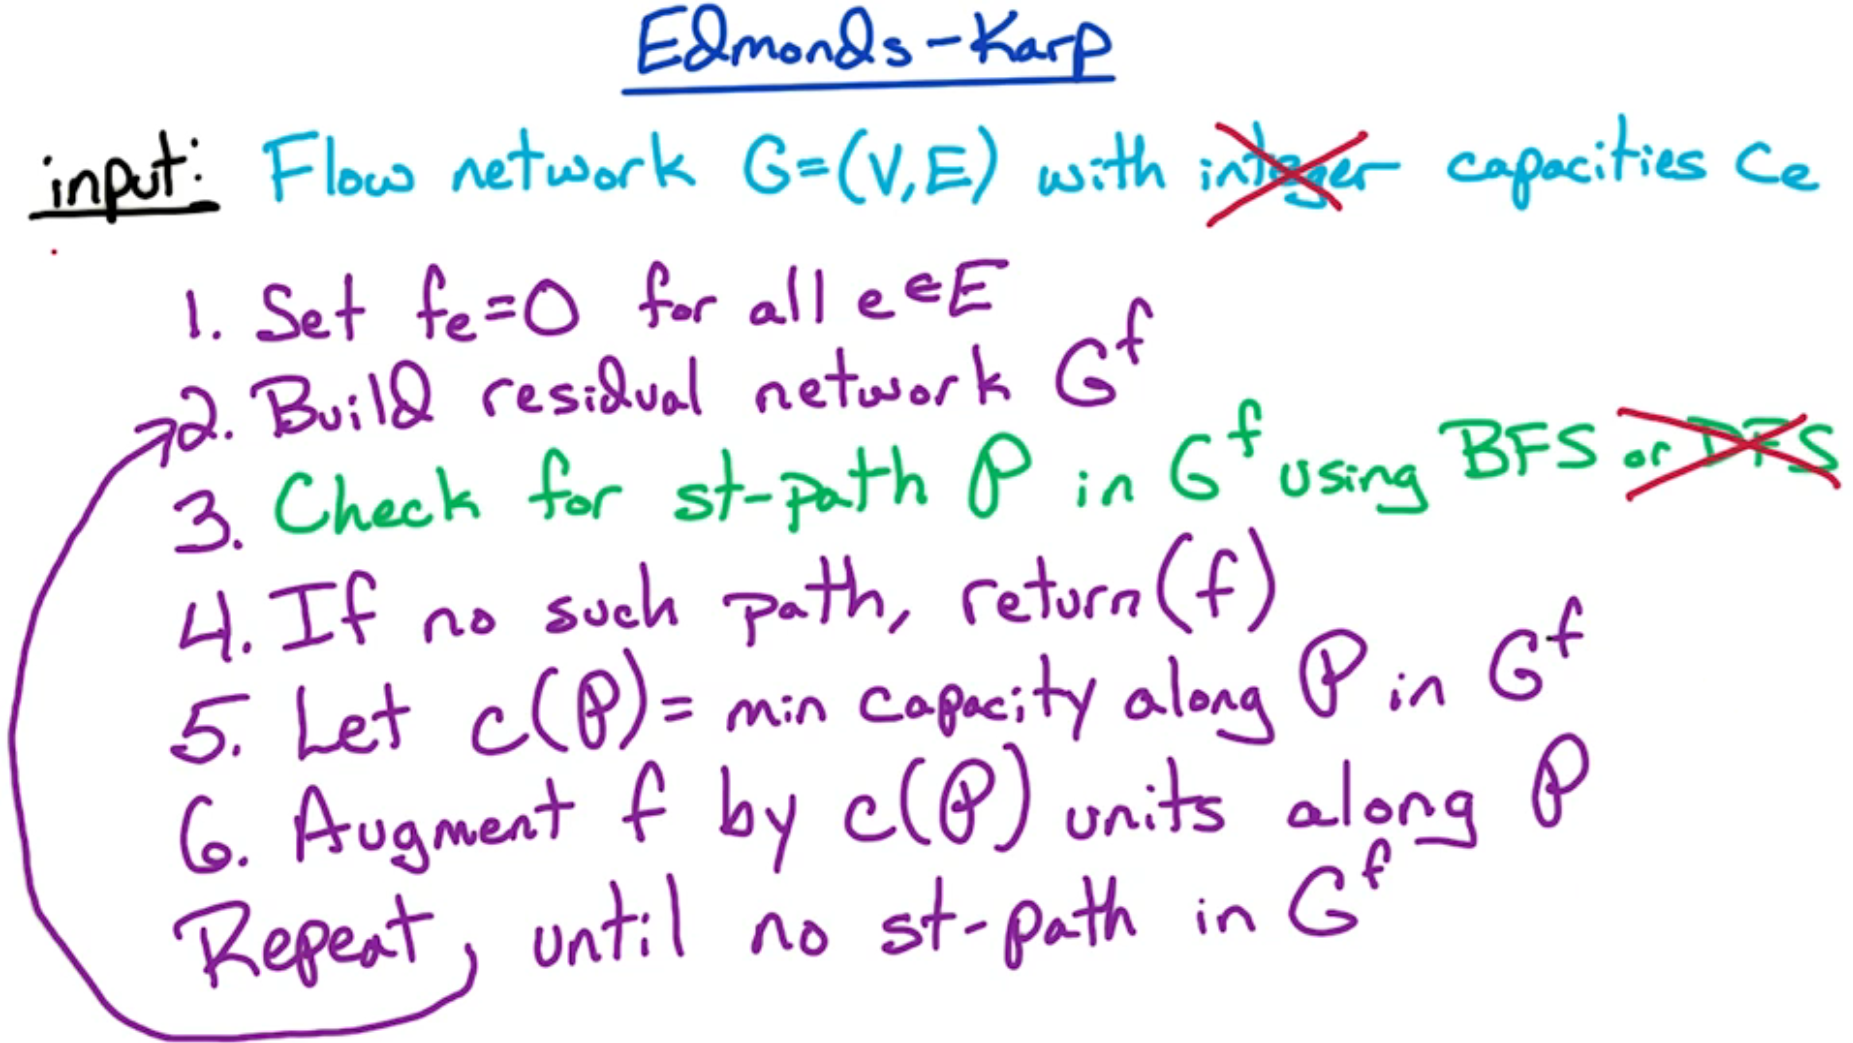 Edmonds-Karp
input: Flow network G=(V,E) with integer capacities Ce
1. Set fe=0 for all e∈E
2. Build residual network G^f
3. Check for st-path P in G^f using BFS or DFS
4. If no such path, return(f)
5. Let c(P)= min capacity along P in G^f
6. Augment f by c(P) units along P
Repeat until no st-path in G^f